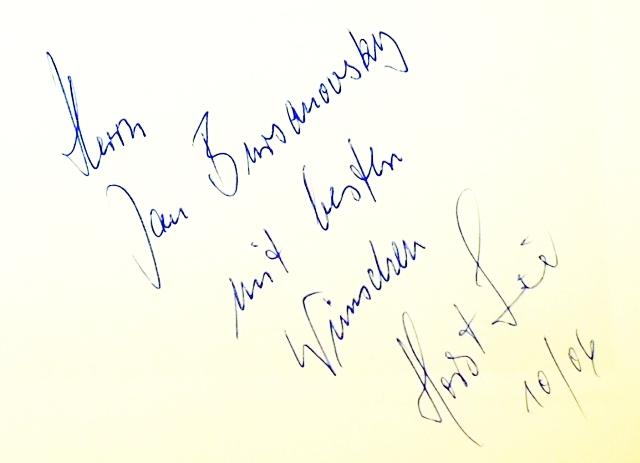 Herrn
Jan Bursanovsky
mit besten
Wünschen
Horst
10/06